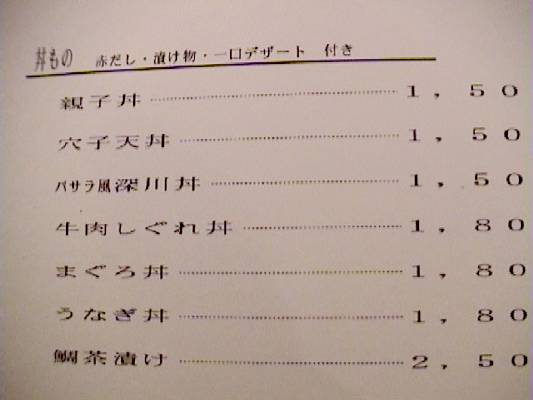 丼もの 赤だし・漬け物・一口デザート 付き
親子丼 1,50
穴子天丼 1,50
バサラ風深川丼 1,50
牛肉しぐれ丼 1,80
まぐろ丼 1,80
うなぎ丼 1,80
鯛茶漬け 2,50